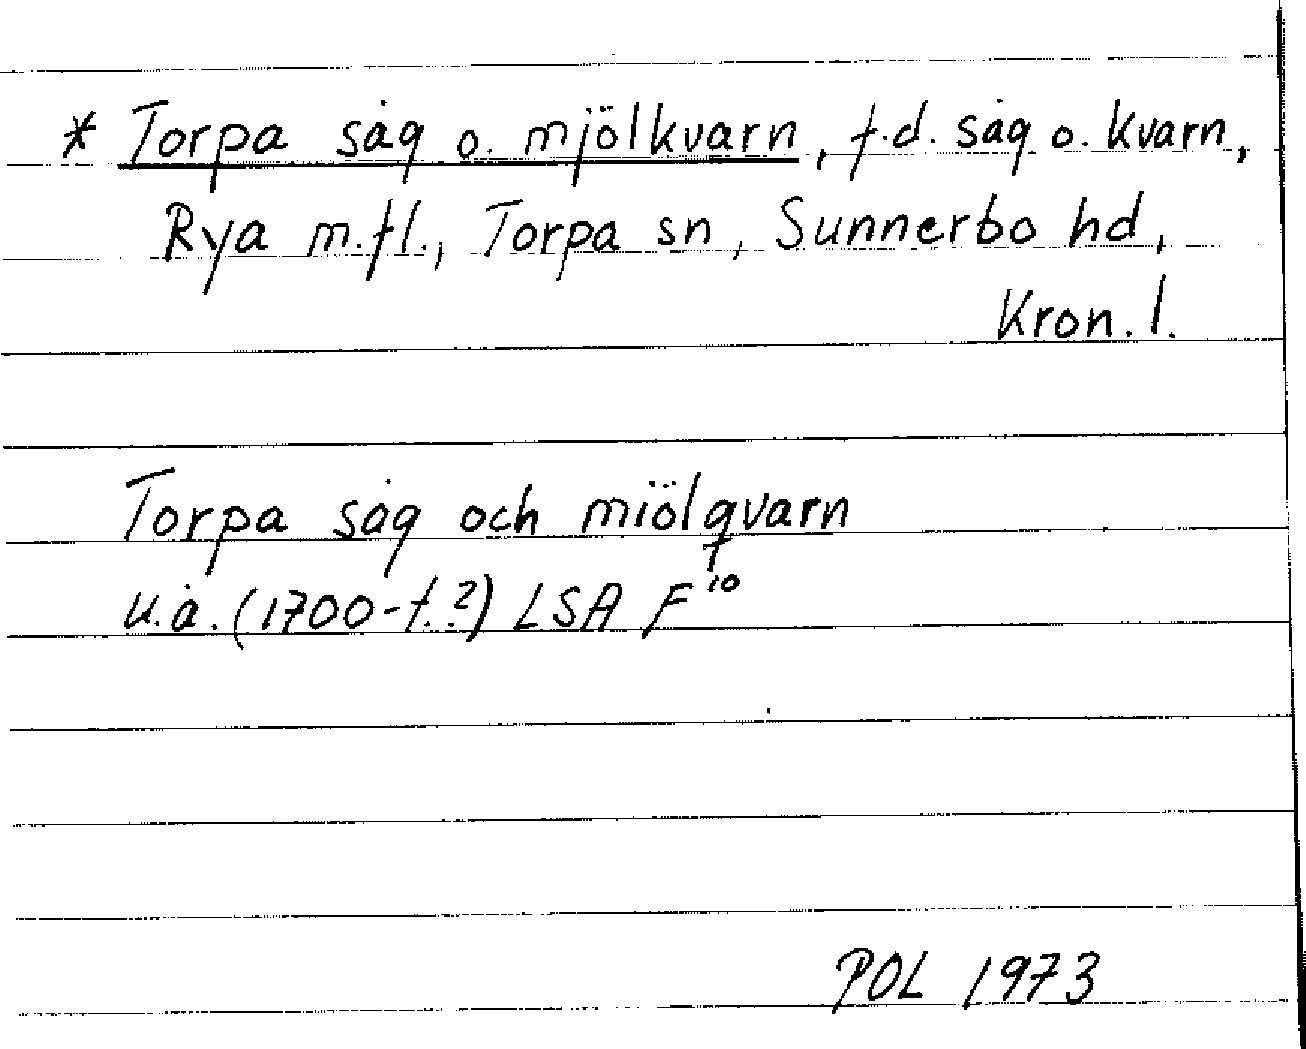 * Torpa såg o. mjölkvarn, f.d. såg o. kvarn,
Rya m.fl., Torpa sn, Sunnerbo hd,
Kron. l.
Torpa såg och miölqvarn
u.å. (1700-t.?) LSA F¹⁰
POL 1973